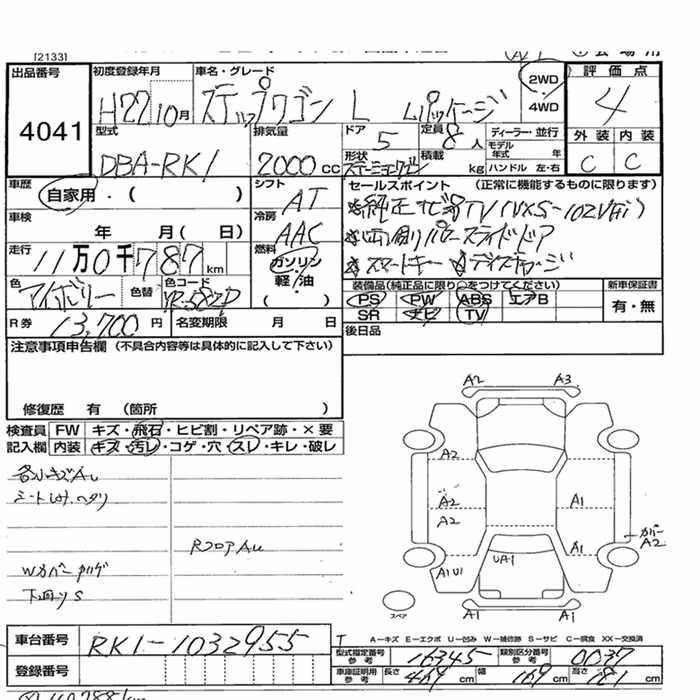 [2133]
出品番号
4041
初度登録年月
H22 10月
車名・グレード
ステップワゴン L Lパッケージ
2WD
・
4WD
評価点
4
外装 内装
C C
型式
DBA-RK1
排気量
2000cc
ドア
5
定員
8人
形状
ステーションワゴン
積載
kg
ディーラー・並行
モデル
年式 年
ハンドル 左・右
車歴
自家用・( )
シフト
AT
セールスポイント (正常に機能するものに限ります)
車検
年 月( 日)
冷房
AAC
走行
11万0千787km
燃料
ガソリン
・
軽・油
スマートキー
色
アイボリー
色替
色コード
YR-582P
R券
13,700円
名変期限 月 日
装備品(純正品に限り○をつけてください)
PS PW ABS エアB
SR ナビ TV
新車保証書
有・無
後日品
注意事項申告欄 (不具合内容等は具体的に記入して下さい)
修復歴 有 (箇所 )
検査員
記入欄
FW キズ・飛石・ヒビ割・リペア跡・×要
内装 キズ・汚レ・コゲ・穴・スレ・キレ・破レ
各小キズAu
RフロアAu
下回りS
A2 A3
A2
A2
A2
A1
カバー
A2
A1U1
UA1
A1
A1 A1
スペア
A-キズ E-エクボ U-凹み W-補修跡 S-サビ C-腐食 XX-交換済
車台番号
RK1-1032955
登録番号
型式指定番号
参考
16345
類別区分番号
参考
0037
車庫証明用
参考
長さ
469cm
幅
169cm
高さ
181cm